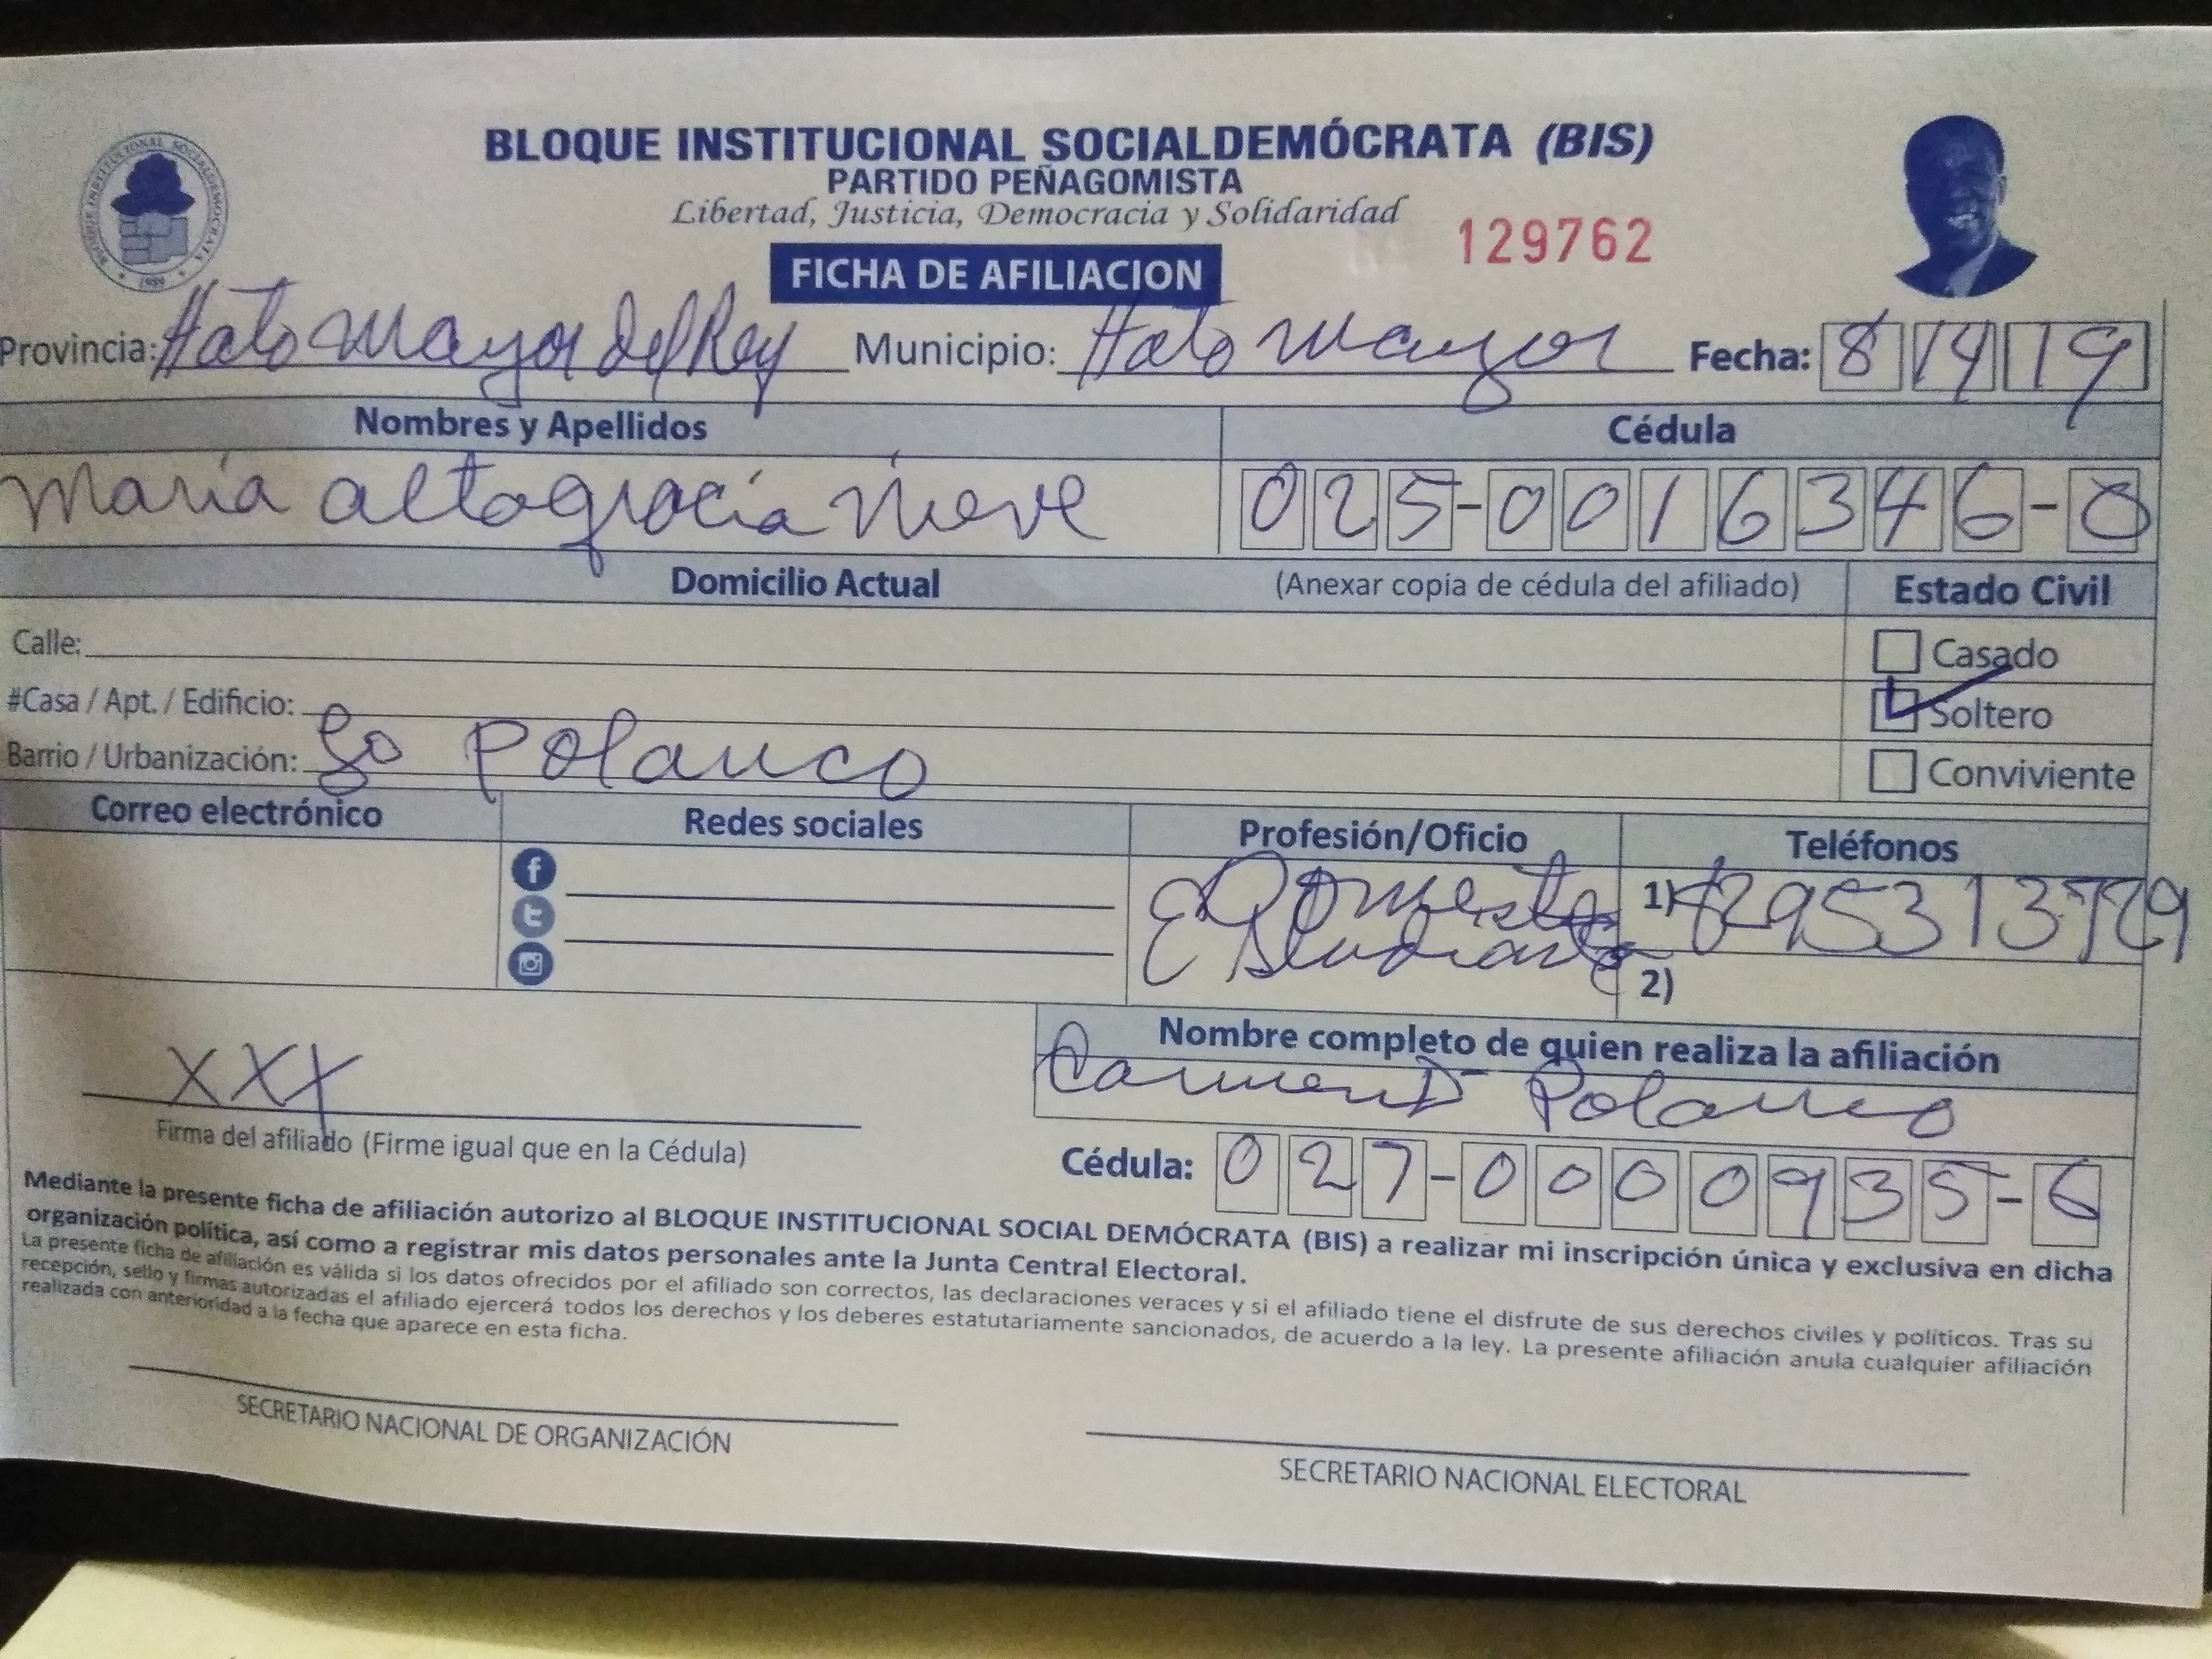 BLOQUE INSTITUCIONAL SOCIALDEMÓCRATA (BIS)
PARTIDO PEÑAGOMISTA
Libertad, Justicia, Democracia y Solidaridad
129762
FICHA DE AFILIACION
Provincia: Hato Mayor del Rey Municipio: Hato Mayor Fecha: 8 14 19
Nombres y Apellidos Cédula
Maria altagracia Nieve 025-0016346-8
Domicilio Actual (Anexar copia de cédula del afiliado) Estado Civil
Calle: Casado
#Casa / Apt. / Edificio: Soltero
Barrio / Urbanización: Polanco
Conviviente
Correo electrónico Redes sociales Profesión/Oficio Teléfonos
1)
Estudiante
2)
XXX
Nombre completo de quien realiza la afiliación
Carmen Polanco
Firma del afiliado (Firme igual que en la Cédula)
Cédula: 027-0000935-6
Mediante la presente ficha de afiliación autorizo al BLOQUE INSTITUCIONAL SOCIAL DEMÓCRATA (BIS) a realizar mi inscripción única y exclusiva en dicha
organización política, así como a registrar mis datos personales ante la Junta Central Electoral.
La presente ficha de afiliación es válida si los datos ofrecidos por el afiliado son correctos, las declaraciones veraces y si el afiliado tiene el disfrute de sus derechos civiles y políticos. Tras su
recepción, sello y firmas autorizadas el afiliado ejercerá todos los derechos y los deberes estatutariamente sancionados, de acuerdo a la ley. La presente afiliación anula cualquier afiliación
realizada con anterioridad a la fecha que aparece en esta ficha.
SECRETARIO NACIONAL DE ORGANIZACIÓN
SECRETARIO NACIONAL ELECTORAL